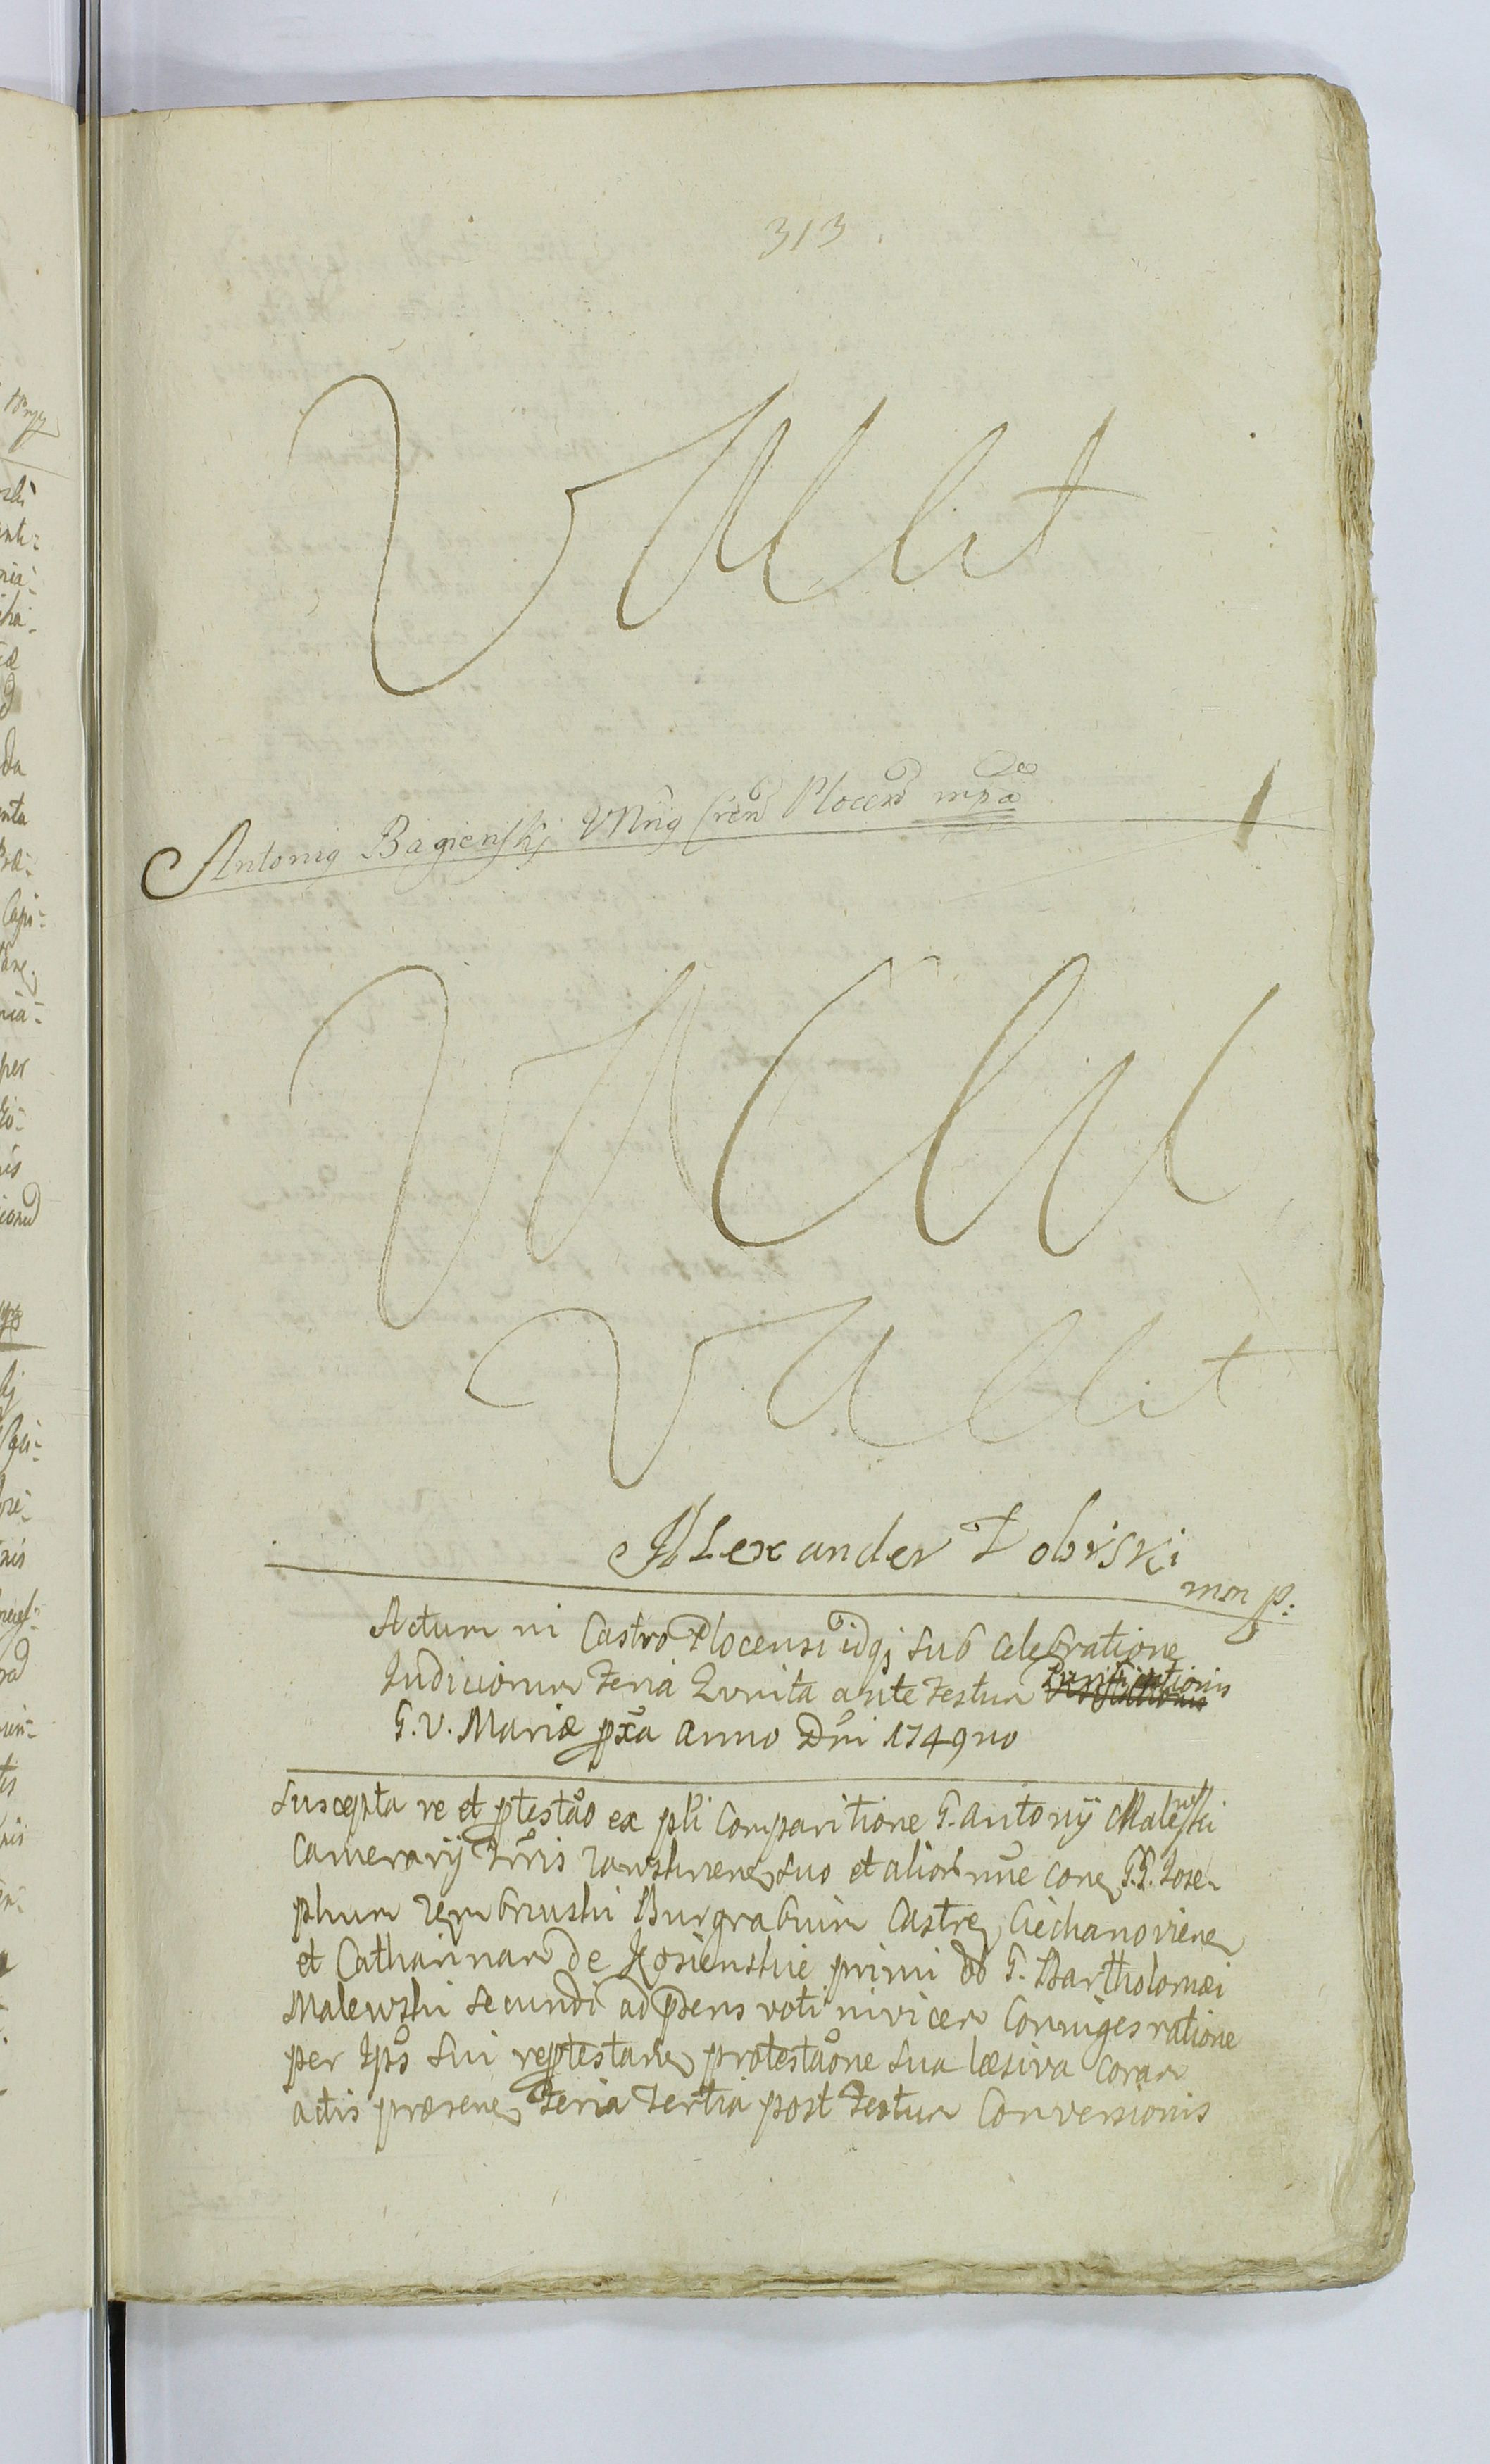 313
Vallit
Antonig Bagieńskj VNrig Cren Plocen mpa
Vacat
Vallit
Alexander Zobiski
mn p:
Actum in Castro Plocensi idqj sub celebratione
Judiciorum Feria Qvinta ante Festum Purificationis
B. V. Mariæ pxa Anno Dni 1749no
Suscepta re et ptestao ex pli Comparitione G. Antonij Malewski
Camerarij Trris Zawskrnen suo et alior nne con G.G. Jose
phum Zembruski Burgrabium Castren Ciechanovien
et Catharinam de Kosienskie primi G. Bartholomæi
Malewski secundi ad psens voti invicem Coniuges ratione
per Ips sui reptestatae protestaone sua læsiva Coram
actis præsen Feria Tertia post Festum Conversionis